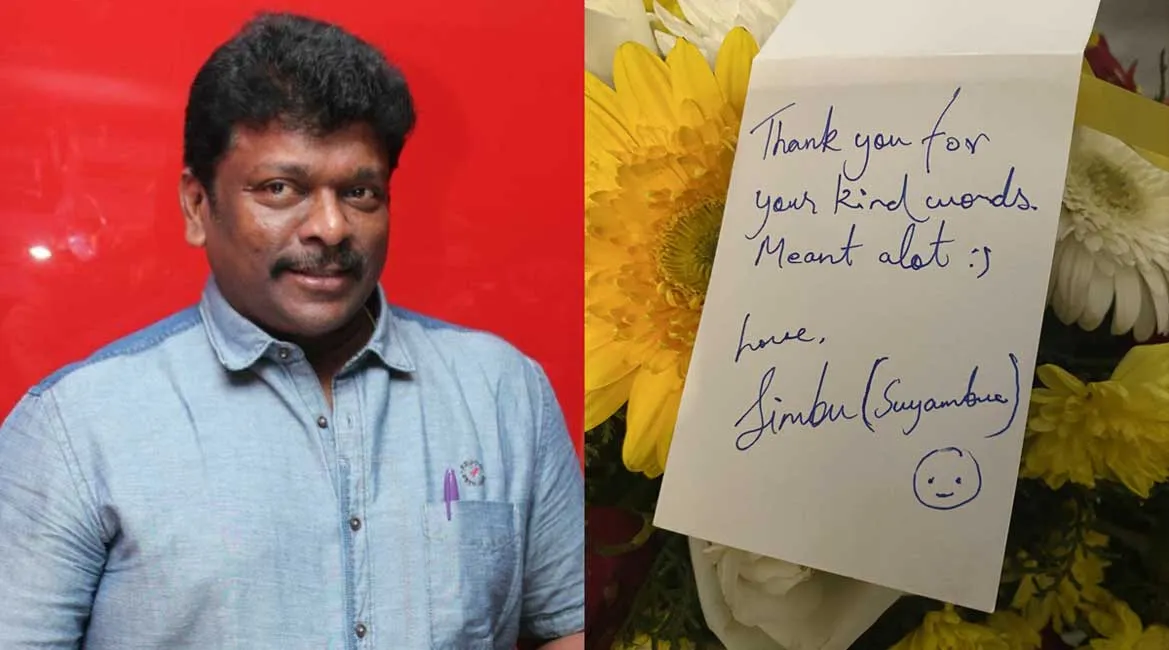 Thank you for
your kind words.
Meant alot :)
Love,
Simbu (Suyambu)